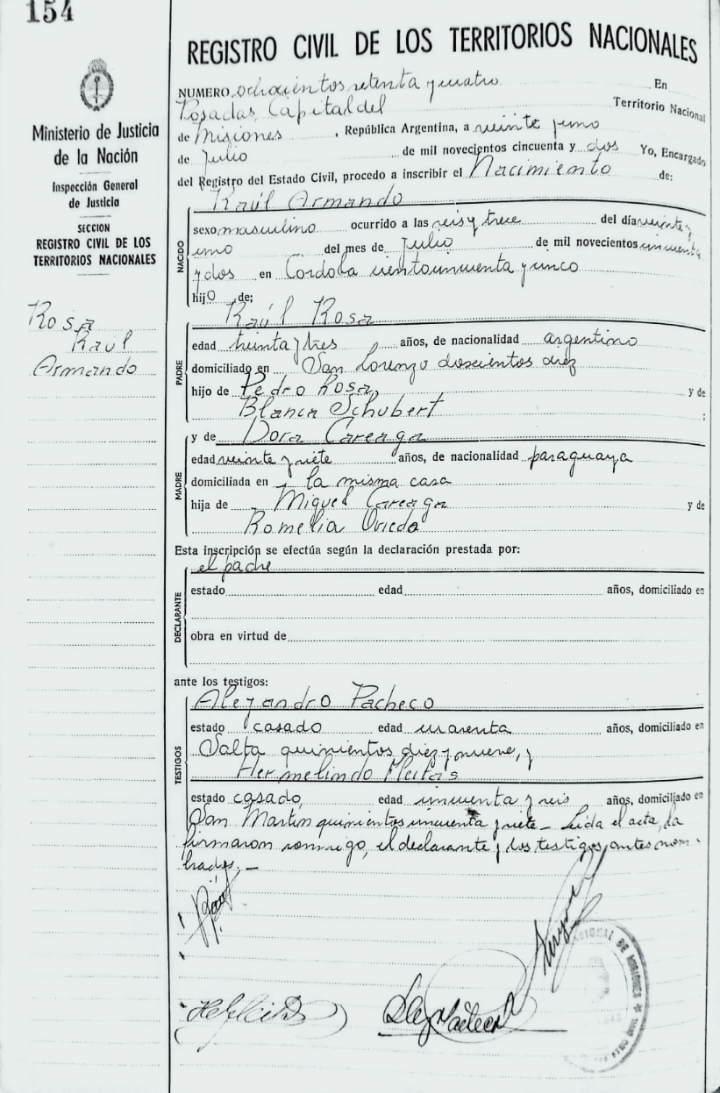 154
REGISTRO CIVIL DE LOS TERRITORIOS NACIONALES
Ministerio de Justicia
de la Nación
Inspección General
de Justicia
SECCION
REGISTRO CIVIL DE LOS
TERRITORIOS NACIONALES
Rosa
Raul
Armando
NUMERO ochocientos setenta y cuatro En
Posadas, Capital del Territorio Nacional
de Misiones, República Argentina, a veinte y uno
de Julio de mil novecientos cincuenta y dos Yo, Encargado
del Registro del Estado Civil, procedo a inscribir el Nacimiento de:
Raúl Armando
NACIDO
sexo masculino ocurrido a las seis y trece del día veinte y
uno del mes de Julio de mil novecientos cincuenta
y dos en Cordoba ciento cincuenta y cinco
hijo de:
Raúl Rosa
PADRE
edad treinta y tres años, de nacionalidad argentino
domiciliado en San Lorenzo doscientos diez
hijo de Pedro Rosa, y de
Blanca Schubert ;
y de Dora Careaga
MADRE
edad veinte y siete años, de nacionalidad paraguaya
domiciliada en la misma casa
hija de Miguel Careaga y de
Romelia Oviedo
Esta inscripción se efectúa según la declaración prestada por:
el padre
DECLARANTE
estado edad años, domiciliado en
obra en virtud de
ante los testigos:
Alejandro Pacheco
TESTIGOS
estado casado edad cuarenta años, domiciliado en
Salta quinientos diez y nueve, y
Hermelindo
estado casado, edad cincuenta y seis años, domiciliado en
San Martin quinientos cincuenta y siete - Leida el acta, la
firmaron conmigo, el declarante y los testigos antes nom-
brados,-